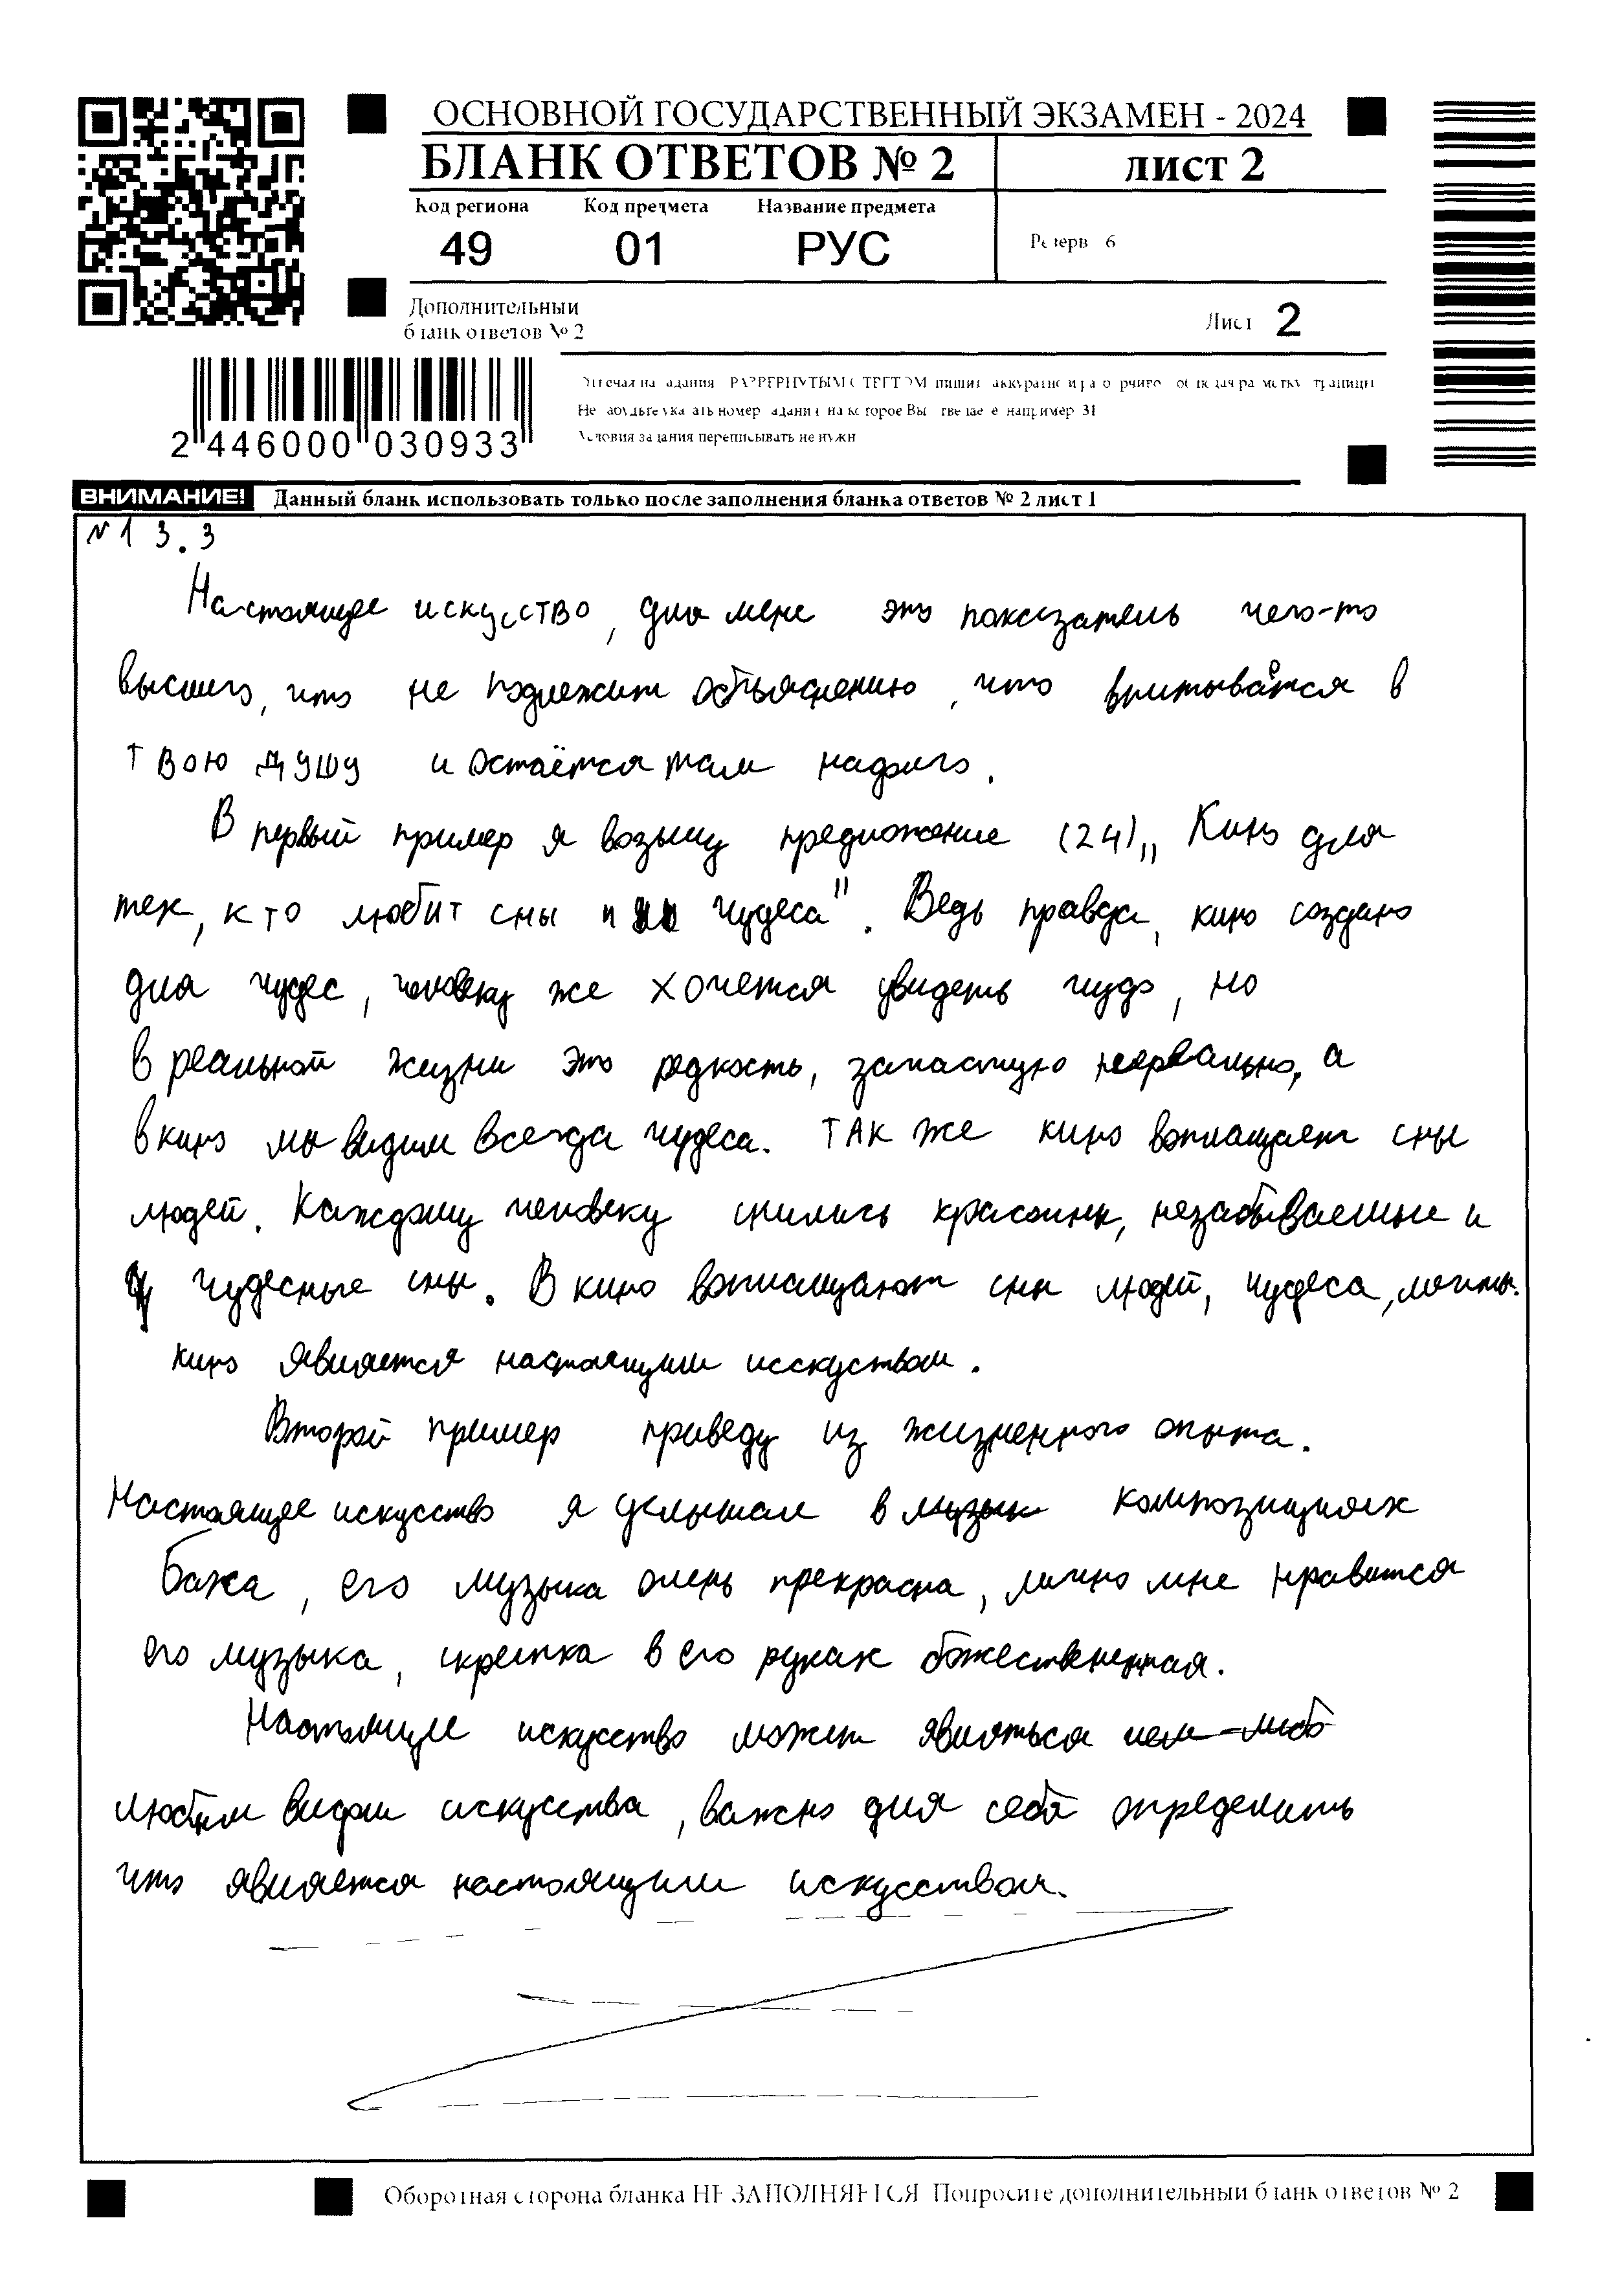 ОСНОВНОЙ ГОСУДАРСТВЕННЫЙ ЭКЗАМЕН - 2024
БЛАНК ОТВЕТОВ № 2
лист 2
Код региона Код предмета Название предмета
49 01 РУС
Резерв 6
Дополнительный
бланк ответов № 2
Лист 2
2 446000 030933
Условия задания переписывать не нужн
ВНИМАНИЕ! Данный бланк использовать только после заполнения бланка ответов № 2 лист 1
№13.3
Настоящее искусство, для меня это показатель чего-то
высшего, что не подлежит объяснению, что впитывается в
твою душу и остаётся там надолго.
В первый пример я возьму предложение (24) „Кино для
тех, кто любит сны и чудеса". Ведь правда, кино создано
для чудес, человеку же хочется увидеть чудо, но
в реальной жизни это редкость, зачастую нереально, а
в кино мы видим всегда чудеса. Так же кино воплащает сны
людей. Каждому человеку снились красочны, незабываемые и
чудесные сны. В кино воплащают сны людей, чудеса, мечты.
кино является настоящим исскуством.
Второй пример приведу из жизненного опыта.
Настоящее искусство я услышал в композициях
Баха, его музыка очень прекрасна, лично мне нравится
его музыка, скрепка в его руках божествененная.
Настоящие искусство может являться чем-либо
любым видом искусства, важно для себя определить
что является настоящим искусством.
Оборотная сторона бланка НЕ ЗАПОЛНЯЕТСЯ Попросите дополнительный бланк ответов № 2